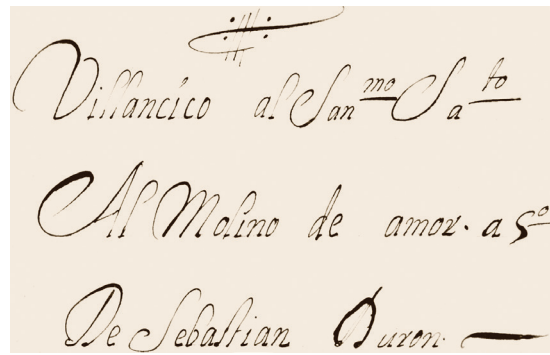 Villancico al San^mo Sa^to
Al Molino de amor. a 5^o
De Sebastian Duron.